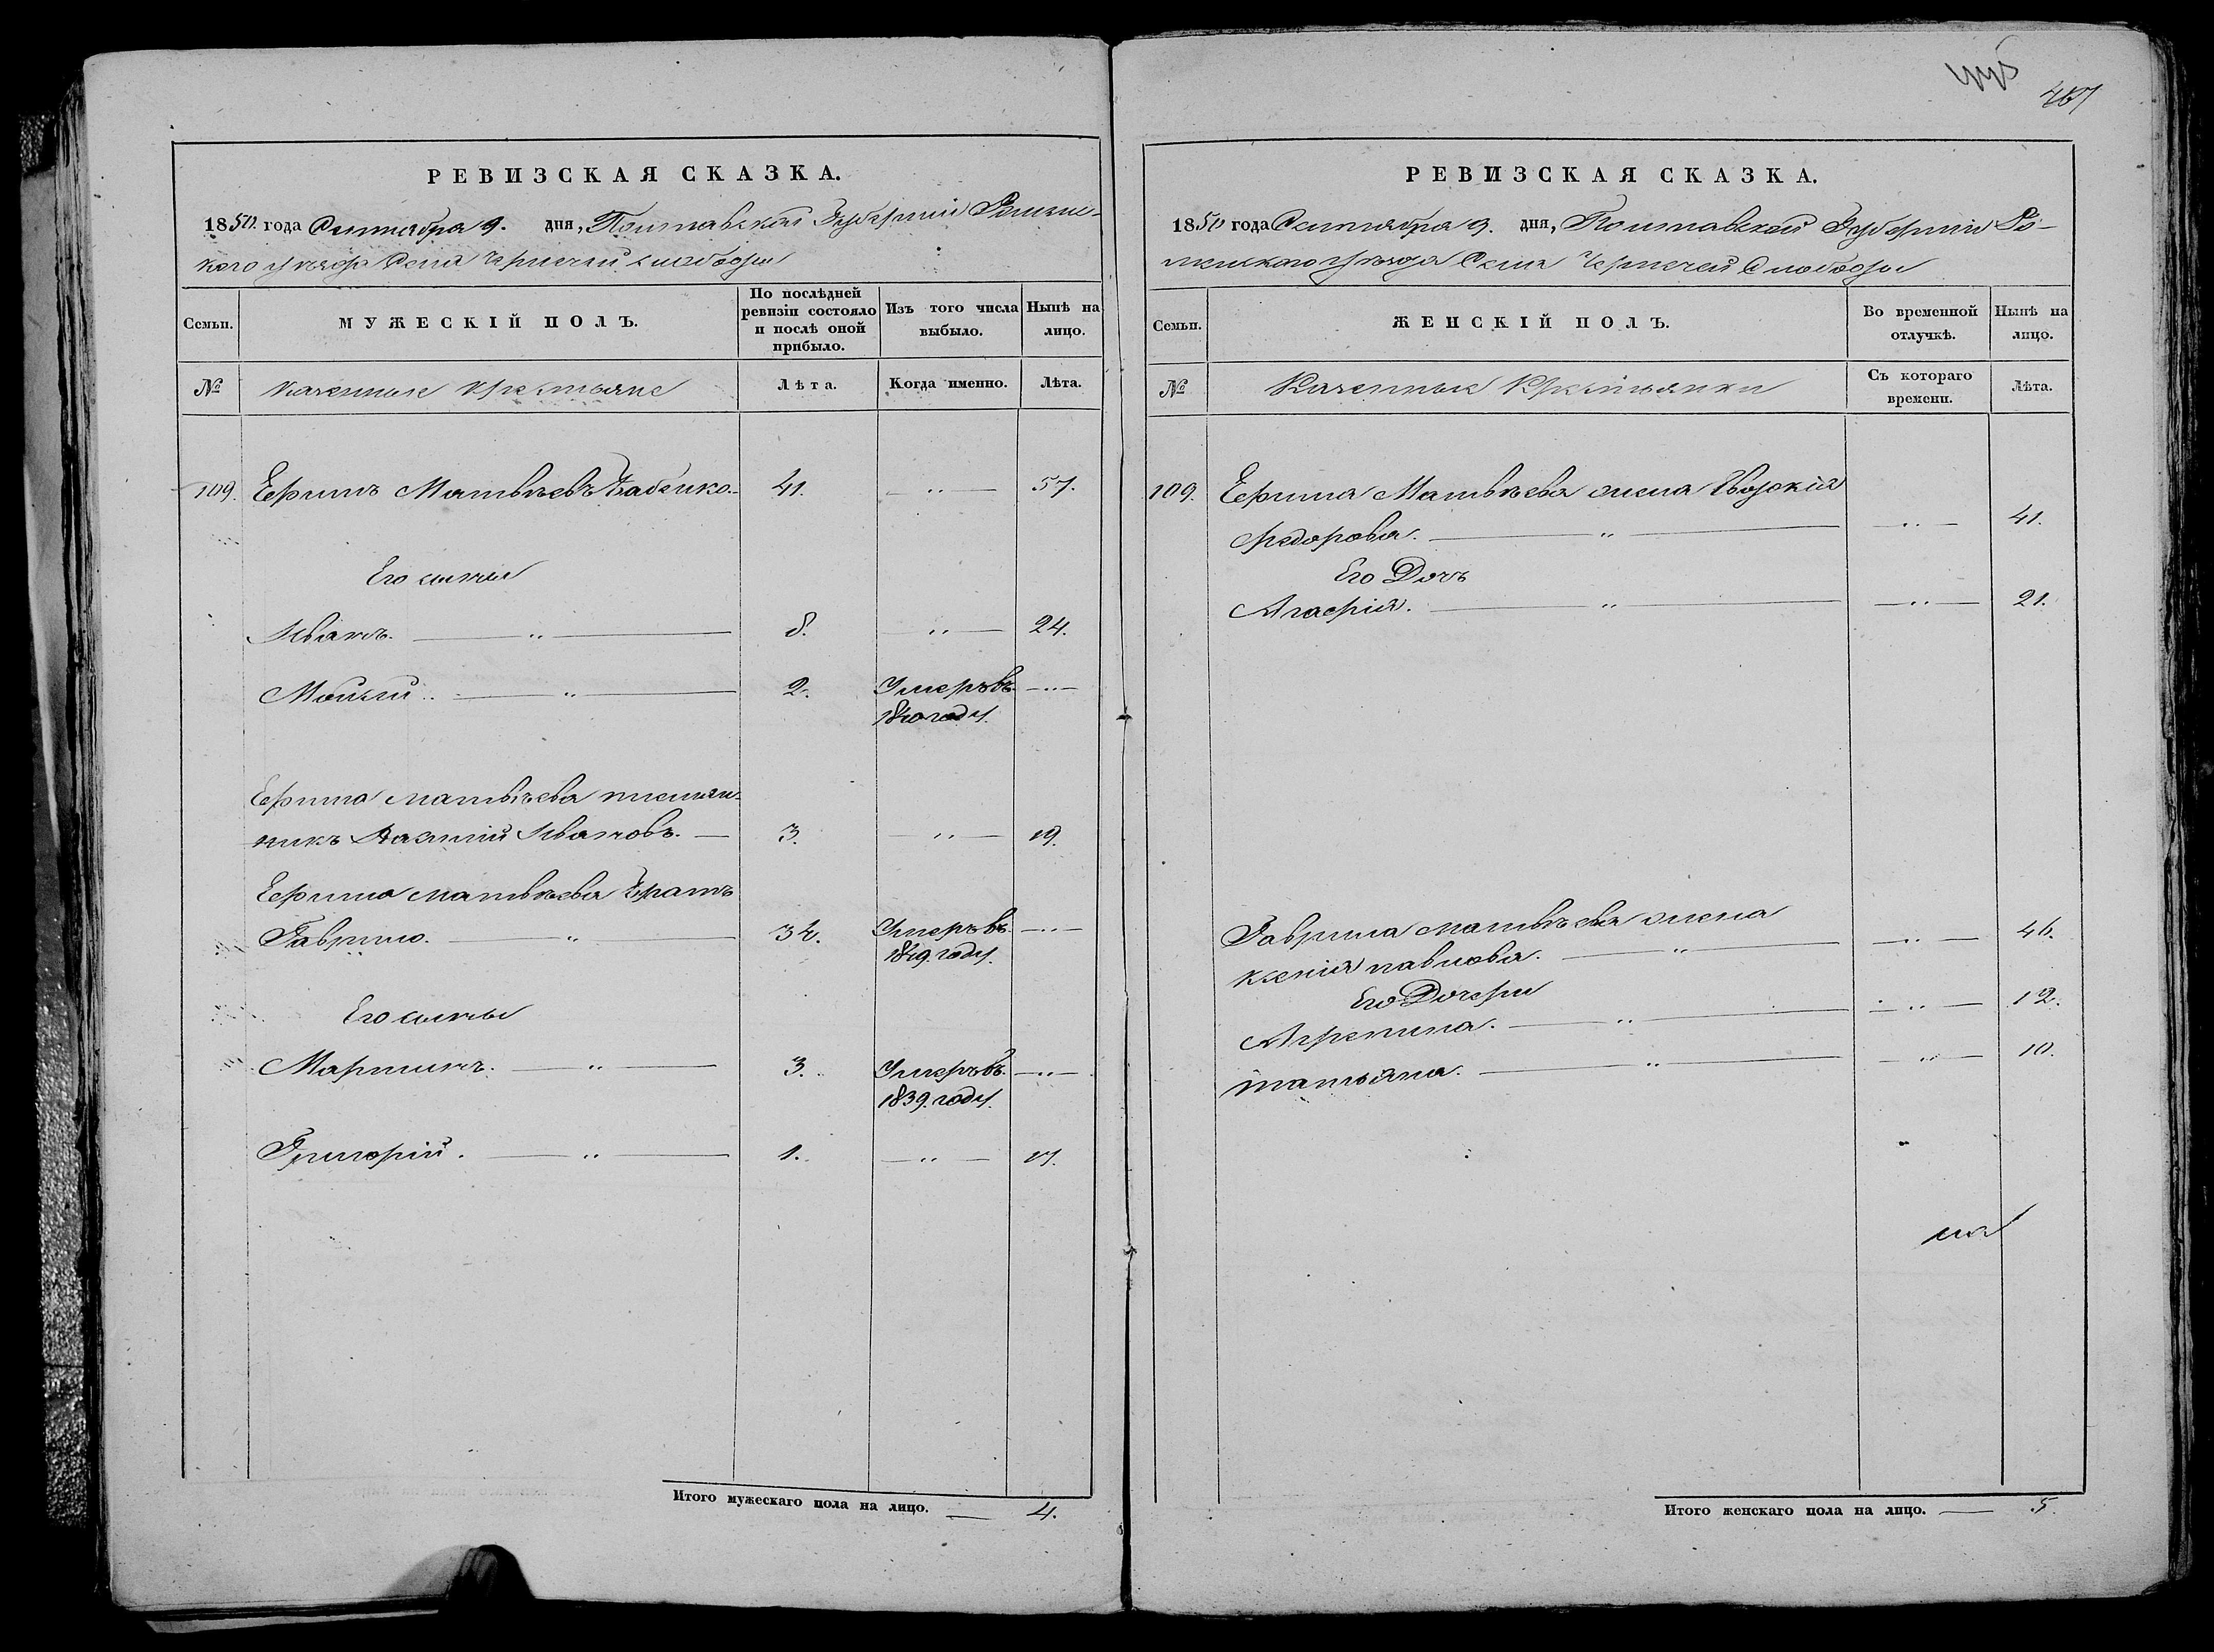 467
РЕВИЗСКАЯ СКАЗКА.
1850 года Сентября 9. дня, Полтавской Губерніи Роменс-
кого уѣзда Села Чернечей слободы
Семьи.
МУЖЕСКІЙ ПОЛЪ.
По послѣдней ревизіи состояло и послѣ оной прибыло.
Изъ того числа выбыло.
Нынѣ на лицо.
№
казенные крестьяне
Лѣта.
Когда именно.
Лѣта.
109. Ефимъ Матвѣевъ 41. 57.
Его сыны
Иванъ. 8. 24.
Мойсей 2. Умеръ въ
1840 году.
Ефима Матвѣева племян-
никъ Ивановъ. 3. 19.
Ефима Матвѣева братъ
Гаврило. Умеръ въ
1849. году.
Его сыны
Мартинъ. 3. Умеръ въ
1839. году.
Григорій. 1. 17.
Итого мужескаго пола на лицо. 4.
РЕВИЗСКАЯ СКАЗКА.
1850 года Сентября 9. дня, Полтавской Губерніи Ро-
менского уѣзда Села Чернечей Слободы
Семьи.
ЖЕНСКІЙ ПОЛЪ.
Во временной отлучкѣ.
Нынѣ на лицо.
№
Казенные Крестьянки
Съ котораго времени.
Лѣта.
109. Ефима Матвѣева жена Євдокія
Федорова. 41.
Его Дочь
Агафія. 21.
Гаврила Матвѣева жена
Ксенія павлова. 46.
Его Дочери
Агрепина. 12.
татьяна. 10.
Итого женскаго пола на лицо. 5